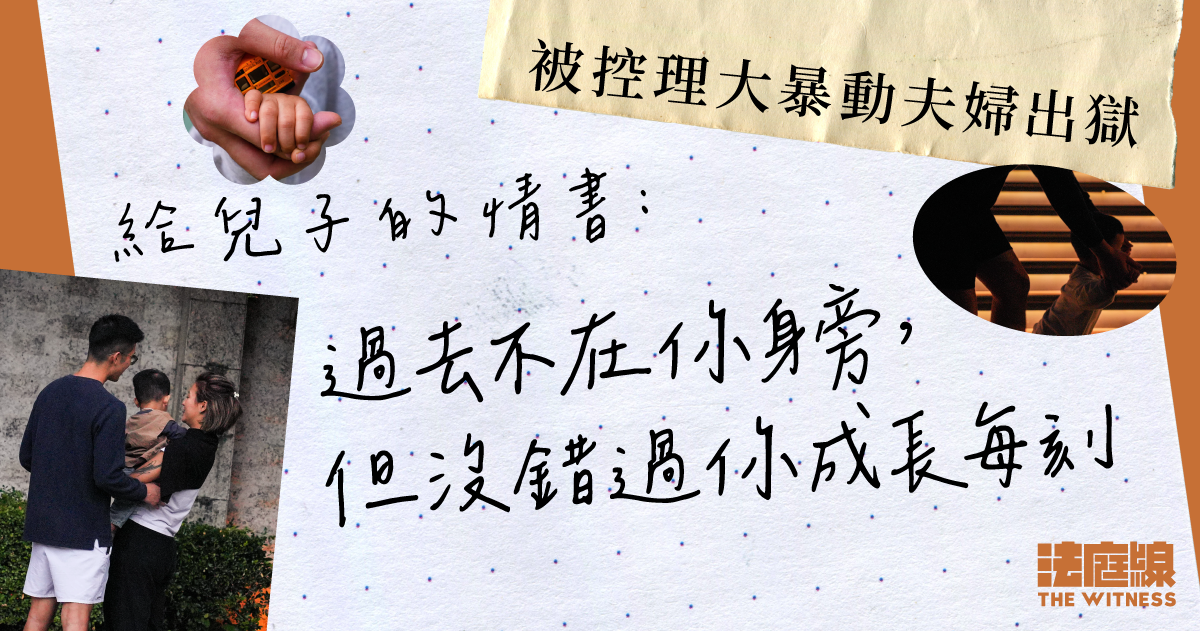 被控理大暴動夫婦出獄
給兒子的情書：
過去不在你身旁，
但沒錯過你成長每刻
法庭線
THE WITNESS